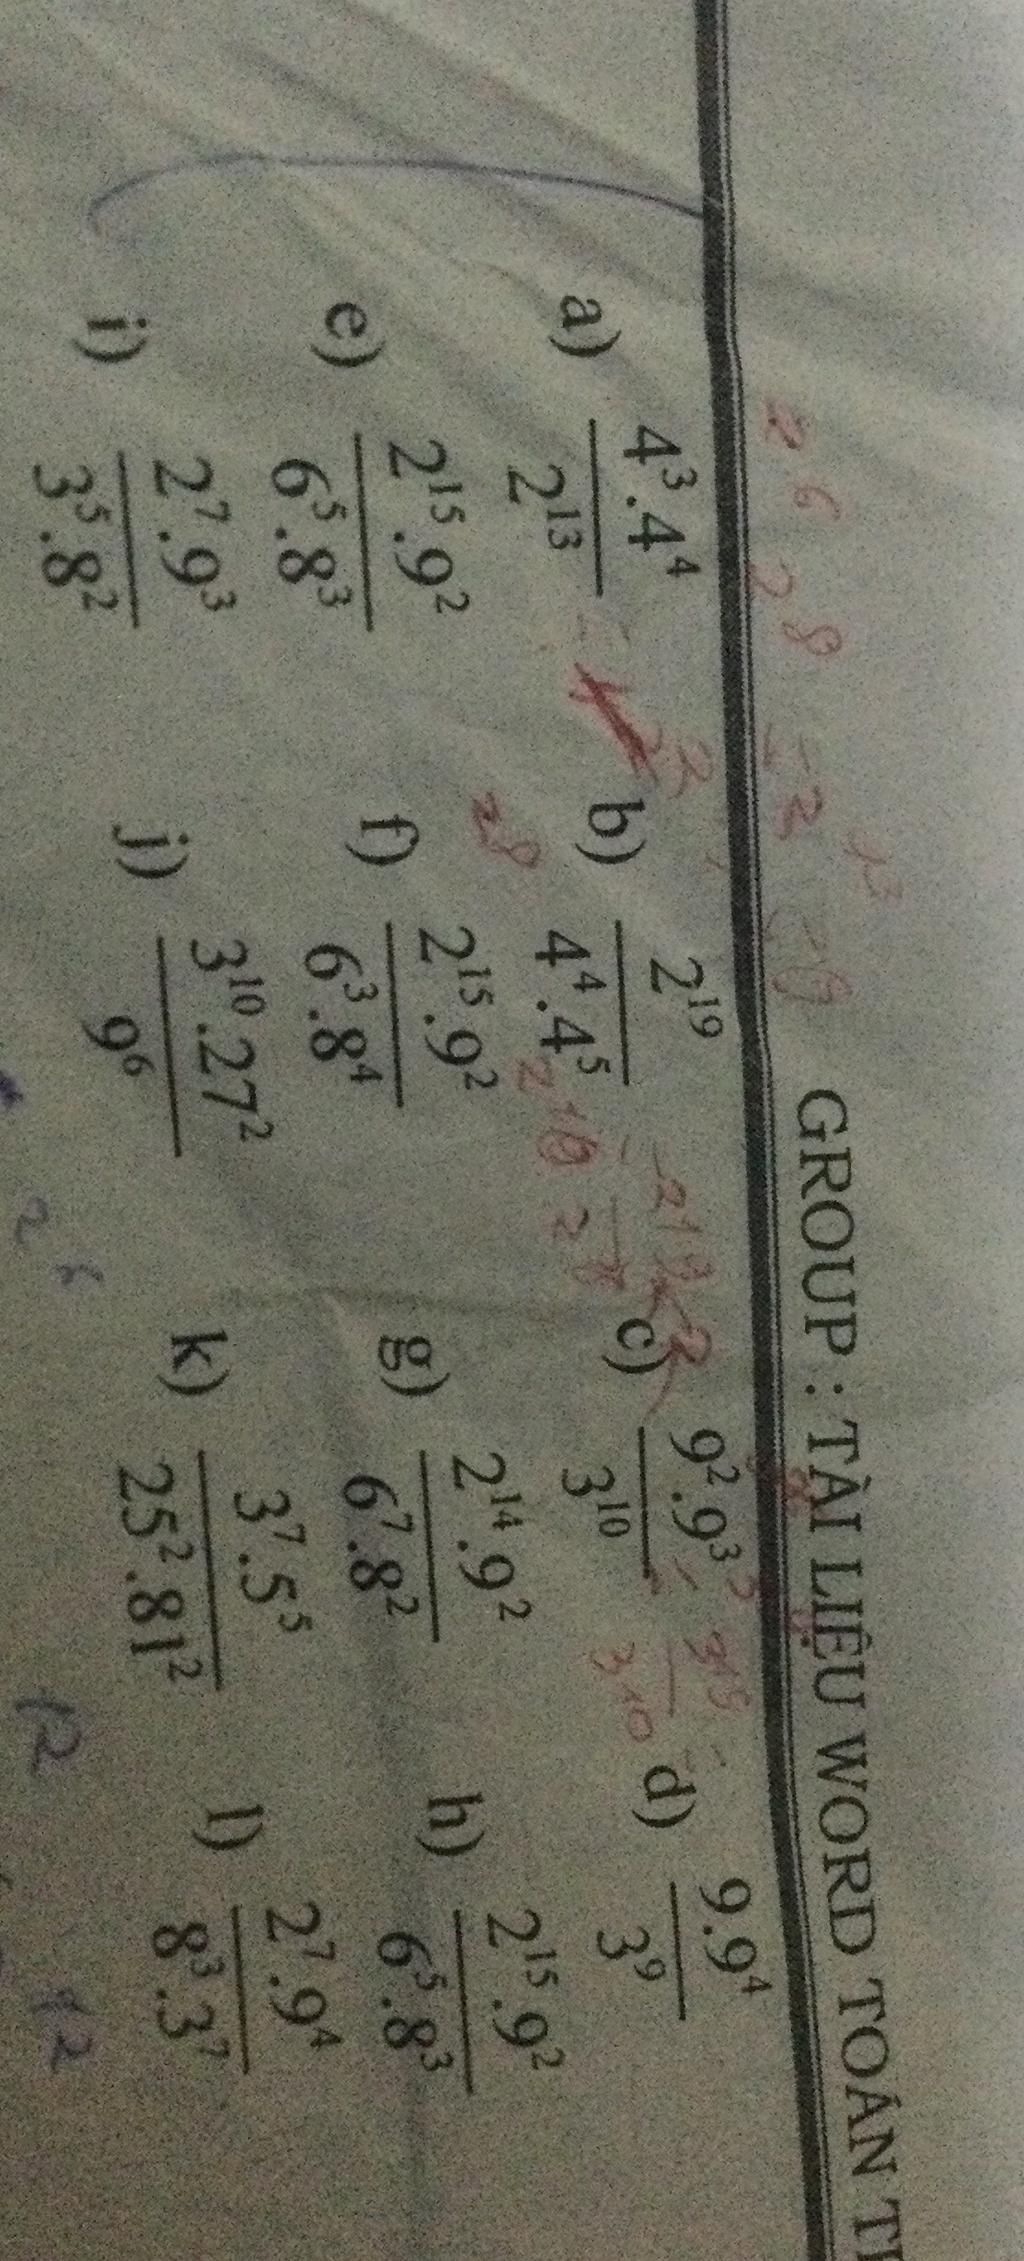 GROUP : TÀI LIỆU WORD TOÁN
2 6 2 8
a) 4³.4⁴ / 2¹³ b) 2¹⁹ / 4⁴.4⁵ c) 9².9³ / 3¹⁰ d) 9.9⁴ / 3⁹
e) 2¹⁵.9² / 6⁵.8³ f) 2¹⁵.9² / 6³.8⁴ g) 2¹⁴.9² / 6⁷.8² h) 2¹⁵.9² / 6⁵.8³
i) 2⁷.9³ / 3⁵.8² j) 3¹⁰.27² / 9⁶ k) 3⁷.5⁵ / 25².81² l) 2⁷.9⁴ / 8³.3⁷
12 12